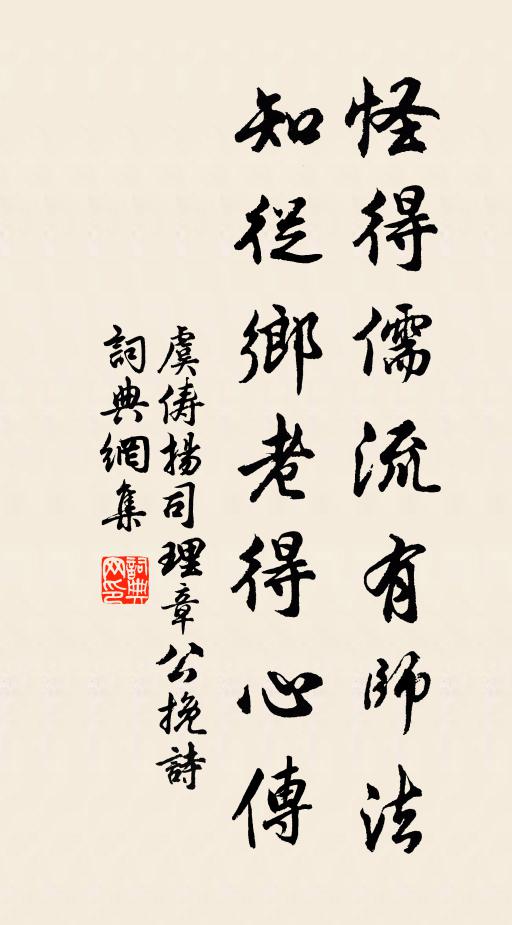 怪得儒流有師法
知從鄉老得心傳
虞儔揚司理章公挽詩
詞典網集
詞典网印